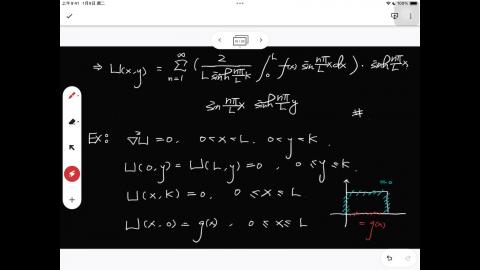 上午9:41 1月9日 週二
⇒ u(x,y) = ∑_{n=1}^{∞} ( 2 / (L sinh (nπ/L)K) ∫_0^L f(x) sin (nπ/L)x dx ) · sinh (nπ/L)x
sin (nπ/L)x sinh (nπ/L)y
#
Ex: ∇²u = 0, 0<x<L, 0<y<K.
u(0,y) = u(L,y) = 0, 0 ≤ y ≤ K.
u(x,K) = 0, 0 ≤ x ≤ L
=0
u(x,0) = g(x), 0 ≤ x ≤ L
= g(x)